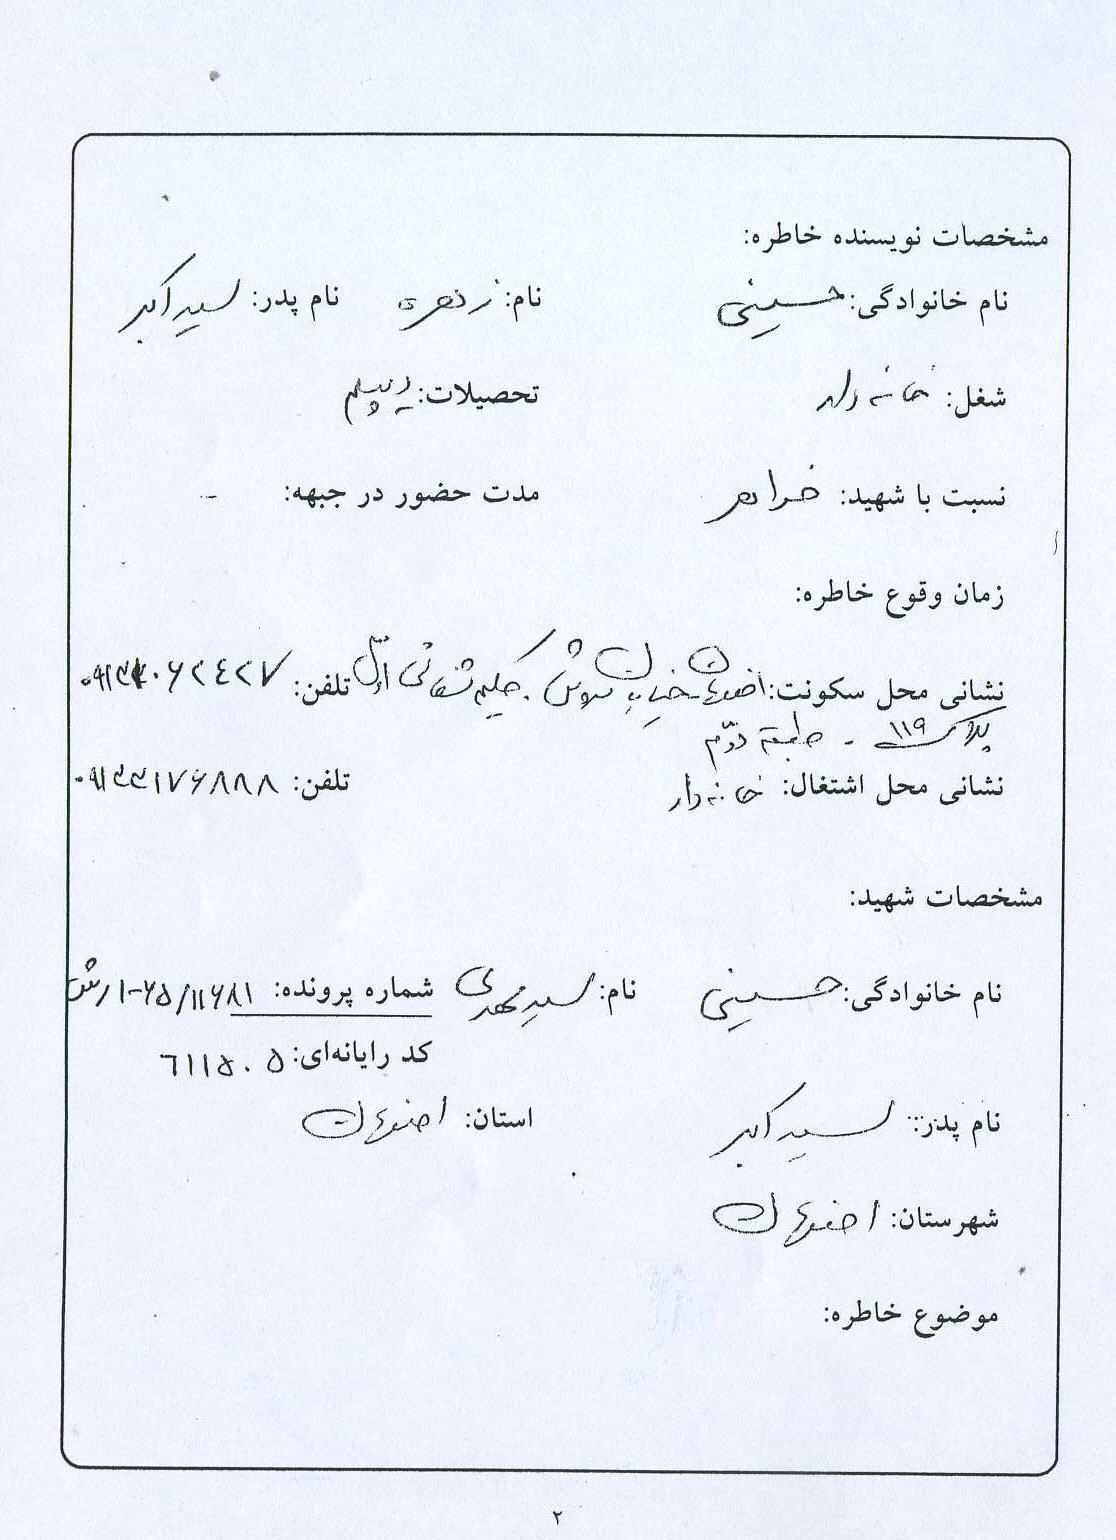 مشخصات نویسنده خاطره:
نام خانوادگی: حسینی نام: زهره نام پدر: سید اکبر
شغل: خانه دار تحصیلات: دیپلم
نسبت با شهید: خواهر مدت حضور در جبهه: -
زمان وقوع خاطره:
نشانی محل سکونت: اصفهان خیابان سروش . حکیم شفائی اوّل تلفن:
پلاک ۱۱۹ - طبقه دوّم
نشانی محل اشتغال: خانه دار تلفن: ۰۹۱۳۳۱۷۶۸۸۸
مشخصات شهید:
نام خانوادگی: حسینی نام: سید مهدی شماره پرونده: ۱-۶۵/۱۱۶۸۱ ارتش
کد رایانه‌ای: ۶۱۱۵۰۵
نام پدر: سید اکبر استان: اصفهان
شهرستان: اصفهان
موضوع خاطره:
۲